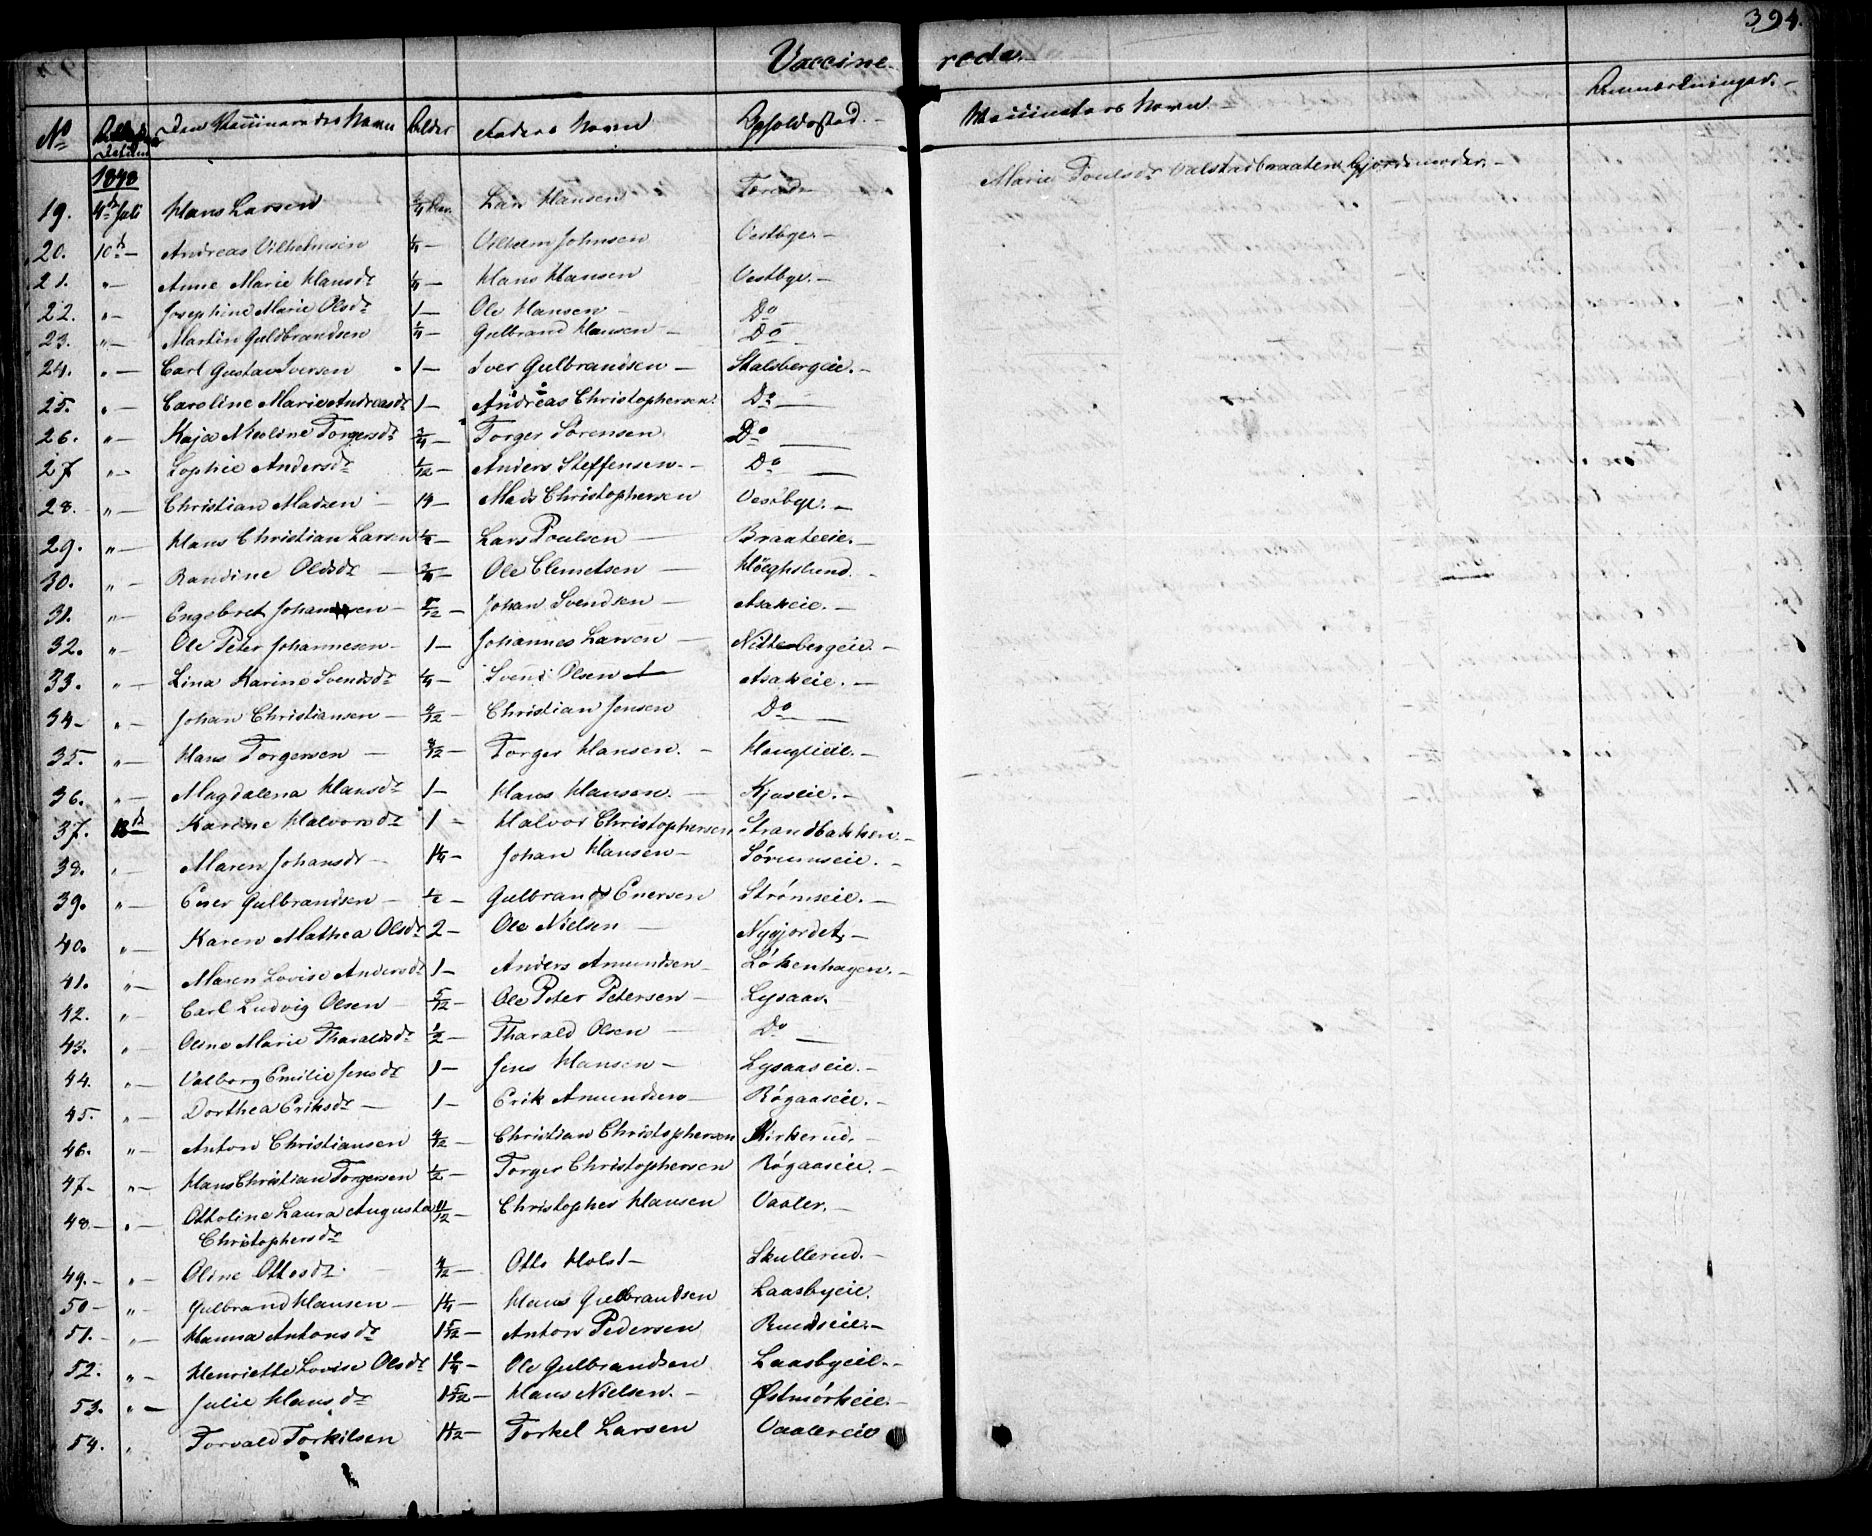 394.
Vaccinerede.
No Den Vaccineredes Navn Alder Faders Navn Opholdssted. Vaccinators Navn Anmærkninger.
1848
19. 4de Juli Hans Larsen 3/4 Aar. Lars Hansen Marie Poulsdr Valstadbraaten Gjordemoder.
20. 10de — Andreas Vilhelmsen 1/4 — Vilhelm Johnsen Vestbye. —
21. " — Anne Marie Hansdr 1/4 — Hans Hansen Vestbye. —
22. " — Josephine Marie Olsdr 1 — Ole Hansen — Do
23. " — Martin Guldbrandsen 1/4 — Gulbrand Hansen — Do
24. " — Carl Gustav Iversen 1 — Iver Gulbrandsen — Stalsbergeie. —
25. " — Caroline Marie Andreasdr 1 — Andreas Christophersen Do —
26. " — Kaja Nicoline Torgersdr 3/4 — Torger Sørensen Do —
27 " — Sophie Andersdr 1/12 — Anders Steffensen. — Do —
28. " — Christian Madsen — 14 — Mads Christophersen Vestbye. —
29. " — Hans Christian Larsen 1/2 — Lars Poulsen — Braateeie. —
30. " — Randine Olsdr — 3/4 — Ole Clemetsen — Høeghslund. —
31. " — Engebret Johansen — 5/12 — Johan Svendsen — Asakeie. —
32. " — Ole Peter Johannesen — 1 — Johannes Larsen — Nittebergeie. —
33. " — Lina Karine Svendsdr 1/4 — Svend Olsen — Asakeie. —
34 — " — Johan Christiansen — 9/12 — Christian Jensen Do —
35. " — Hans Torgersen — 9/12 — Torger Hansen. — Houglieie. —
36. " — Magdalena Hansdr 1 — Hans Hansen. — Kjuseie. —
37. 13de Karine Halvorsdr 1 — Halvor Christophersen Strandbakken. —
38. " — Maren Johansdr — 1 1/4 — Johan Hansen — Sørumseie. —
39. " — Ener Gulbrandsen — 1/2 — Gulbrand Enersen Strømseie. —
40. " — Karen Mathea Olsdr 2 — Ole Nielsen — Nygjordet. —
41. " — Maren Lovise Andersdr 1 — Anders Amundsen — Løkenhagen. —
42. " — Carl Ludvig Olsen — 5/12 — Ole Peter Petersen — Lysaas.
43. " — Oline Marie Tharaldsdr 1/2 — Tharald Olsen — Do —
44. " — Valborg Emilie Jensdr 1 — Jens Hansen — Lysaaseie. —
45. " — Dorthea Eriksdr — 1 — Erik Amundsen — Røgaaseie. —
46. " — Anton Christiansen 9/12 — Christian Christophersen Kirkerud. —
47 — " — Hans Christian Torgersen 1/2 — Torger Christophersen Røgaaseie. —
48. — " — Ottoline Laura Augusta 11/12 — Christopher Hansen Vaaler. —
Christophersdr
49. — " — Oline Ottosdr — 9/12 — Otto Holst — Skullerud. —
50 — " — Gulbrand Hansen — 1 1/4 — Hans Gulbrandsen Laasbyeie.
51. — " — Hanna Antonsdr 1 5/12 — Anton Pedersen Rudseie. —
52. " — Henriette Lovise Olsdr 1 — Ole Gulbrandsen Laasbyeie. —
53. " — Julie Hansdr 1 5/12 — Hans Nielsen. — Østmørkeie. —
54. " Torvald Torkilsen 1 1/12 — Torkel Larsen Vaalereie